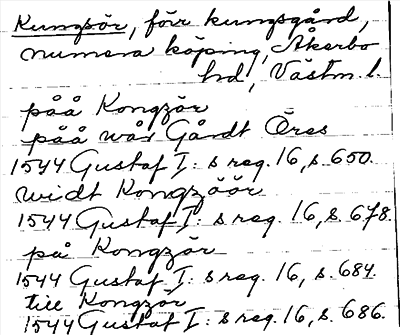 Kungsör, förr kungsgård,
numera köping, Åkerbo
hd, Västm. l.
påå Kongzör
påå wår Gårdt Öres
1544 Gustaf I: s reg. 16, s. 650.
widt Kongzöör
1544 Gustaf I: s reg. 16, s. 678.
på Kongzör
1544 Gustaf I: s reg. 16, s. 684.
till Kongzör
1544 Gustaf I: s reg. 16, s. 686.